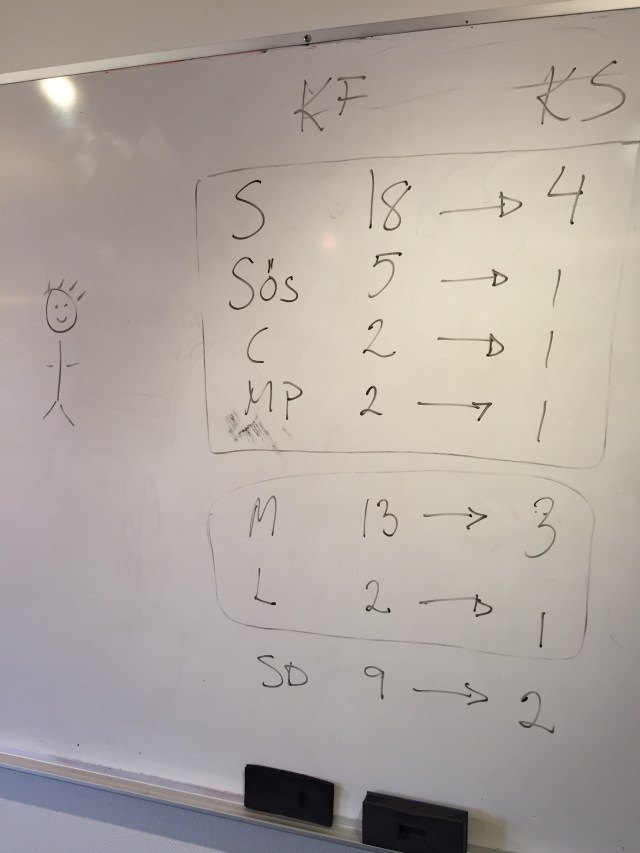 KF KS
S 18 → 4
Sös 5 → 1
C 2 → 1
MP 2 → 1
M 13 → 3
L 2 → 1
SD 9 → 2